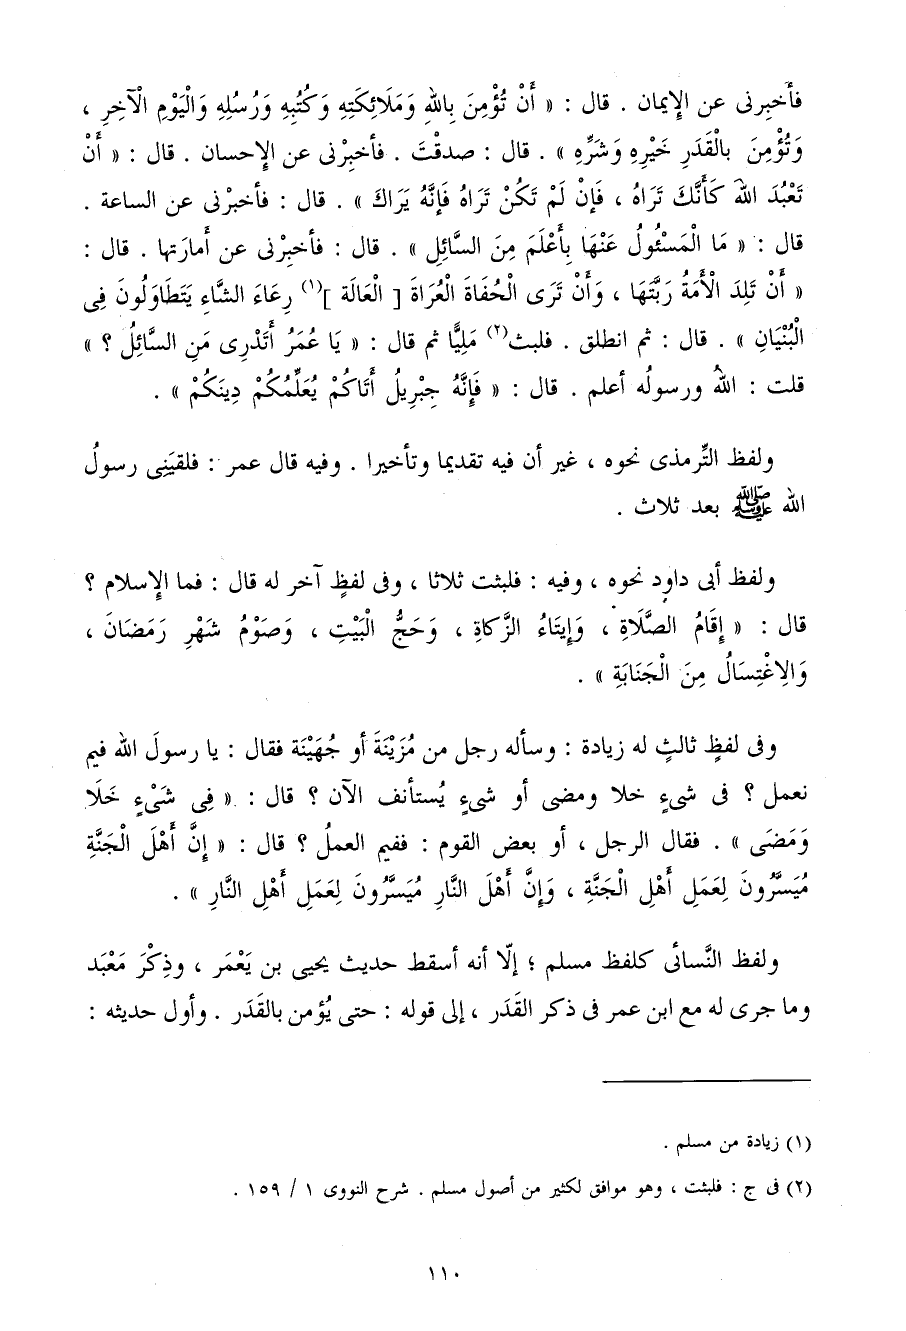 فأخبرنى عن الإيمان . قال : « أَنْ تُؤْمِنَ بِاللهِ وَمَلَائِكَتِهِ وَكُتُبِهِ وَرُسُلِهِ وَالْيَوْمِ الْآخِرِ ،
وَتُؤْمِنَ بالْقَدَرِ خَيْرِهِ وَشَرِّهِ » . قال : صدقْتَ . فأخبِرْنى عن الإحسان . قال : « أَنْ
تَعْبُدَ اللهَ كَأَنَّكَ تَرَاهُ ، فَإِنْ لَمْ تَكُنْ تَرَاهُ فَإِنَّهُ يَرَاكَ » . قال : فأخبرْنى عن الساعة .
قال : « مَا الْمَسْئُولُ عَنْهَا بِأَعْلَمَ مِنَ السَّائِلِ » . قال : فأخبرْنى عن أمارتها . قال :
« أَنْ تَلِدَ الْأَمَةُ رَبَّتَهَا ، وَأَنْ تَرَى الْحُفَاةَ الْعُرَاةَ [ الْعَالَةَ ](١) رِعَاءَ الشَّاءِ يَتَطَاوَلُونَ فِى
الْبُنْيَانِ » . قال : ثم انطلق . فلبث(٢) مَلِيًّا ثم قال : « يَا عُمَرُ أَتَدْرِى مَنِ السَّائِلُ ؟ »
قلت : اللهُ ورسولُه أعلم . قال : « فَإِنَّهُ جِبْرِيلُ أَتَاكُمْ يُعَلِّمُكُمْ دِينَكُمْ » .
ولفظ التِّرمذى نحوه ، غير أن فيه تقديما وتأخيرا . وفيه قال عمر : فلقيَنِى رسولُ
الله ﷺ بعد ثلاث .
ولفظ أبى داود نحوه ، وفيه : فلبثت ثلاثا ، وفى لفظٍ آخر له قال : فما الإسلام ؟
قال : « إِقَامُ الصَّلَاةِ ، وَإِيتَاءُ الزَّكَاةِ ، وَحَجُّ الْبَيْتِ ، وَصَوْمُ شَهْرِ رَمَضَانَ ،
وَالِاغْتِسَالُ مِنَ الْجَنَابَةِ » .
وفى لفظٍ ثالثٍ له زيادة : وسأله رجل من مُزَيْنَةَ أو جُهَيْنَة فقال : يا رسولَ الله فيم
نعمل ؟ فى شىءٍ خلا ومضى أو شىءٍ يُستأنف الآن ؟ قال : « فِى شَىْءٍ خَلَا
وَمَضَى » . فقال الرجل ، أو بعض القوم : ففيم العملُ ؟ قال : « إِنَّ أَهْلَ الْجَنَّةِ
مُيَسَّرُونَ لِعَمَلِ أَهْلِ الْجَنَّةِ ، وَإِنَّ أَهْلَ النَّارِ مُيَسَّرُونَ لِعَمَلِ أَهْلِ النَّارِ » .
ولفظ النَّسائى كلفظ مسلم ؛ إلّا أنه أسقط حديث يحيى بن يَعْمَر ، وذِكْرَ مَعْبَد
وما جرى له مع ابن عمر فى ذكر القَدَر ، إلى قوله : حتى يُؤمن بالقَدَر . وأول حديثه :
(١) زيادة من مسلم .
(٢) فى ج : فلبثت ، وهو موافق لكثير من أصول مسلم . شرح النووى ١ / ١٥٩ .
١١٠